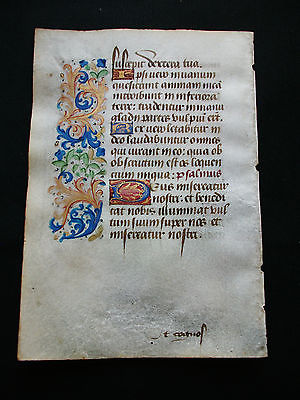 suscepit dextera tua.
Ipsi vero in vanum
quesierunt animam mea
introibunt in inferiora
terre: tradentur in manu
gladii partes vulpiu erut.
Rex vero letabitur in
deo laudabuntur omnes
qui iurant in eo: quia ob
obstructum est os loquen
tium iniqua: psalmus
Deus misereatur
nostri: et benedi
cat nobis illuminat vul
tum suum super nos et
misereatur nostri.
et cognos